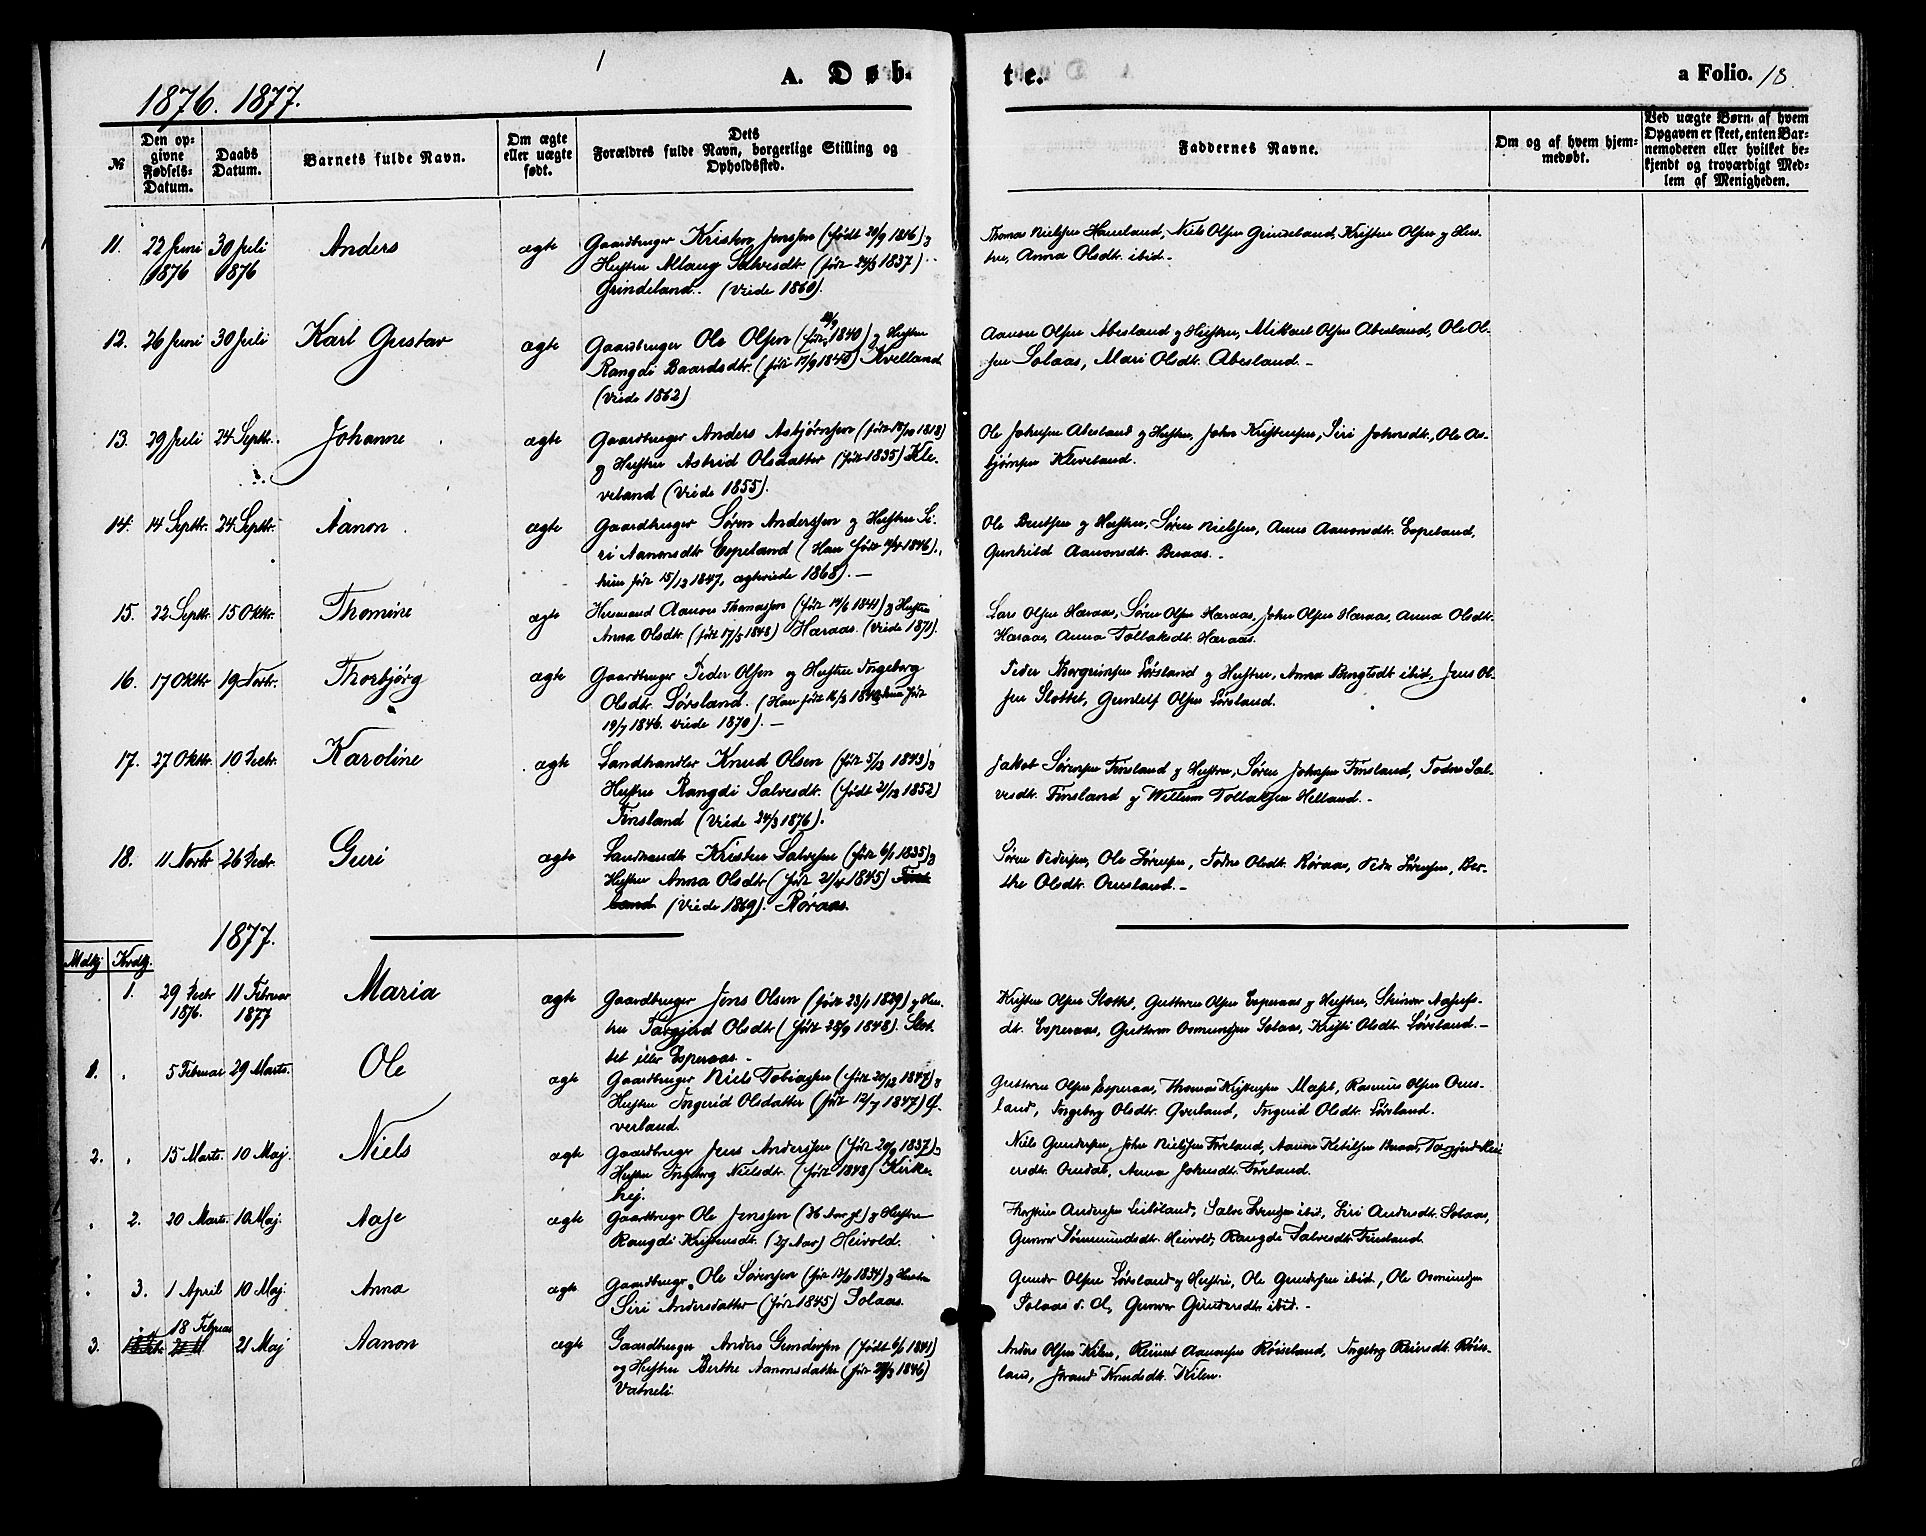 1
1876. 1877.
A. Døb-
te.
a Folio. 18.
№
Den opgivne Fødsels-Datum.
Daabs Datum.
Barnets fulde Navn.
Om ægte eller uægte født.
Dets Forældres fulde Navn, borgerlige Stilling og Opholdssted.
Faddernes Navne.
Om og af hvem hjemmedøbt.
Ved uægte Børn, af hvem Opgaven er skeet, enten Barnemoderen eller hvilket bekjendt og troværdigt Medlem af Menigheden.
11. 22 Juni 30 Juli Anders ægte Gaardbruger Kristen Jenssen (født 20/9 1836) og
1876 1876 Hustru Alaug Salvesdt. (født 24/3 1837)
Grindeland. (Viede 1860).
Thomas Nielsen Haueland, Niels Olsen Grindeland, Kristen Olsen og Hus-
tru, Anna Olsdt. ibid.
12. 26 Juni 30 Juli Karl Gustav ægte Gaardbruger Ole Olsen (født 1840) og Hustru
Rangdi Baardsdtr. (født 17/9 1840) Kvelland
(Viede 1862)
Aanon Olsen Abesland og Hustru, Mikael Olsen Abesland, Ole Ol-
sen Solaas, Mari Olsdt. Abesland.
13. 29 Juli 24 Septbr. Johanne ægte Gaardbruger Anders Asbjørnsen (født 1818)
og Hustru Astrid Olsdatter (født 1835) Kle-
veland (Viede 1855).
Ole Johnsen Abesland og Hustru, John Kristensen, Siri Johnsdt., Ole As-
bjørnsen Kleveland.
14. 14 Septbr. 24 Septbr. Aanon ægte Gaardbruger Søren Anderssen og Hustru Si-
ri Aanonsdt. Espeland (Han født 1846),
hun født 15/12 1847, ægteviede 1868).
Ole Bentsen og Hustru, Søren Nielsen, Anne Aanonsdt. Espeland,
Gunhild Aanonsdt. Buaas.
15. 22 Septbr. 15 Oktbr. Thomine ægte Aanon Thomassen (født 14/6 1841) og Hustru
Anna Olsdtr. (født 17/5 1848) Haraas. (Viede 1871).
Lars Olsen Haraas, Søren Olsen Haraas, John Olsen Haraas, Anna Olsdt.
Haraas, Anna Tollaksdt. Haraas.
16. 17 Oktbr. 19 Novbr. Thorbjørg ægte Gaardbruger Peder Olsen og Hustru Ingeborg
Olsdt. Lørsland. (Han født hun født
19/7 1846. Viede 1870).
Peder Thorgrimsen Lørsland og Hustru, Anna Bengtsdt. ibid., Jens Ol-
sen Slottet, Gunulf Olsen Lørsland.
17. 27 Oktbr. 10 Decbr. Karoline ægte Landhandler Knud Olsen (født 5/12 1843) og
Hustru Rangdi Salvesdt. (født 21/12 1852)
Finsland (Viede 24/3 1876).
Jakob Sørensen Finsland og Hustru, Søren Johnsen Finsland, Todne Sal-
vesdt. Finsland og Willum Tollaksen Helland.
18. 11 Novbr. 26 Decbr. Guri ægte Landhandl. Kristen Salvesen (født 6/1 1835) og
Hustru Anna Olsdtr. (født 21/4 1845)
(Viede 1869). Røraas.
Søren Pedersen, Ole Sørensen, Todne Olsdt. Røraas, Peder Sørensen, Ber-
the Olsdt. Ousland.
1877.
Mdkj. Kvdkj.
1. 29 Decbr. 11 Februar Maria ægte Gaardbruger Jens Olsen (født 23/1 1829) og Hus-
1876. 1877 tru Targjerd Olsdt. (født 28/9 1848). Slot-
tet eller Esperaas.
Kristen Olsen Slottet, Guttorm Olsen Esperaas og Hustru,
dt. Esperaas, Guttorm Osmundsen Solaas, Kristi Olsdt. Lørsland.
1. 5 Februar 29 Marts. Ole ægte Gaardbruger Niels Tobiassen (født 20/12 1847) og
Hustru Ingerid Olsdatter (født 12/7 1847) Q-
verland.
Guttorm Olsen Esperaas, Thomas Kristensen, Rasmus Olsen Ous-
land, Ingeborg Olsdt. Qverland, Ingerid Olsdt. Lørsland.
2. 15 Marts. 10 Maj. Niels ægte Gaardbruger Jens Anderssen (født 20/9 1837) og
Hustru Ingeborg Nielsdt. (født 1848) Kirke-
hej.
Niels Gundersen, John Nielsen Føreland, Aanon Ketilsen Buaas,
ersdt. Omdal, Anna Johnsdt. Føreland.
2. 20 Marts. 10 Maj. Aase ægte Gaardbruger Ole Jenssen (36 Aar gl.) og Hustru
Rangdi Kristensdt. (27 Aar) Heivold.
Thorstein Andersen Leiløland, Salve ibid, Siri Andersdt. Solaas,
Gunvor Sørmundsdt. Heivold, Rangdi Salvesdt. Finsland.
3. 1 April 10 Maj. Anna ægte Gaardbruger Ole Sørensen (født 1834) og Hustru
Siri Andersdatter (født 1845) Solaas.
Gunder Olsen Lørsland og Hustru, Ole Gundersen ibid, Ole Osmundsen
Solaas, Gunvor Gundersdt. ibid.
3. 18 Februar 21 Maj Aanon ægte Gaardbruger Anders Gundersen (født 6/1 1841)
og Hustru Berthe Aanonsdatter (født 1846)
Vatneli.
Anders Olsen Kilen, Reiunt Aanonsen Røiseland, Ingeborg Reiersdt. Røise-
land, Jorand Knudsdt. Kilen.